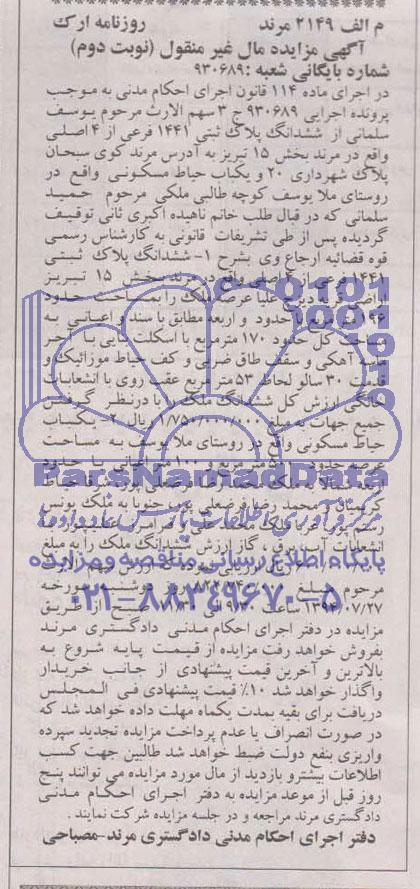 م الف ۲۱۴۹ مرند روزنامه ارک
آگهی مزایده مال غیر منقول (نوبت دوم)
شماره بایگانی شعبه :۹۳۰۶۸۹
در اجرای ماده ۱۱۴ قانون اجرای احکام مدنی به موجب
پرونده اجرایی ۹۳۰۶۸۹ ج ۳ سهم الارث مرحوم یوسف
سلمانی از ششدانگ پلاک ثبتی ۱۴۴۱ فرعی از ۴ اصلی
واقع در مرند بخش ۱۵ تبریز به آدرس مرند کوی سبحان
پلاک شهرداری ۲۰ و یکباب حیاط مسکونی واقع در
روستای ملا یوسف کوچه طالبی ملکی مرحوم حمید
سلمانی که در قبال طلب خانم ناهیده اکبری ثانی توقیف
گردیده پس از طی تشریفات قانونی به کارشناس رسمی
قوه قضائیه ارجاع وی بشرح ۱- ششدانگ پلاک ثبتی
۱۴۴۱ فرعی از ۴ اصلی واقع در مرند بخش ۱۵ تبریز
اراضی قریه دیزج علیا عرصه ملک را بمساحت حدود
۱۹۶ متر مربع با حدود و اربعه مطابق با سند و اعیانی به
مساحت کل حدود ۱۷۰ مترمربع با اسکلت بنایی با آجر
آهکی و سقف طاق ضربی و کف حیاط موزائیک و
قدمت ۳۰ سال و لحاظ ۵۳ متر مربع عقب روی با انشعابات
خانگی ارزش کل ششدانگ ملک را با درنظر گرفتن
جمیع جهات به مبلغ ۱/۷۵۰/۰۰۰/۰۰۰ ریال ۲- یکباب
حیاط مسکونی واقع در روستای ملا یوسف به مساحت
عرصه حدود متر مربع و بنایی با حدود
شمالا به ملک محمدرضا فرضعلی پور شرقا حیاط
کریمیان و محمد رضا فرضعلی پور جنوبا به ملک یونس
غربا ملک محمد علی و فرامرز
انشعابات آب برق ، گاز ارزش ششدانگ ملک را به مبلغ
مرحوم مبلغ روز دوشنبه مورخه
۱۳۹۴/۰۷/۲۷ ساعت ۹/۳۰ الی صبح از طریق
مزایده در دفتر اجرای احکام مدنی دادگستری مرند
بفروش خواهد رفت مزایده از قیمت پایه شروع به
بالاترین و آخرین قیمت پیشنهادی از جانب خریدار
واگذار خواهد شد ۱۰٪ قیمت پیشنهادی فی المجلس
دریافت برای بقیه بمدت یکماه مهلت داده خواهد شد که
در صورت انصراف یا عدم پرداخت مزایده تجدید سپرده
واریزی بنفع دولت ضبط خواهد شد طالبین جهت کسب
اطلاعات بیشتر و بازدید از مال مورد مزایده می توانند پنج
روز قبل از موعد مزایده به دفتر اجرای احکام مدنی
دادگستری مرند مراجعه و در جلسه مزایده شرکت نمایند .
دفتر اجرای احکام مدنی دادگستری مرند-مصباحی
ParsNamadData
پایگاه اطلاع رسانی مناقصه و مزایده
۰۲۱-۸۸۳۴۹۶۷۰-۵